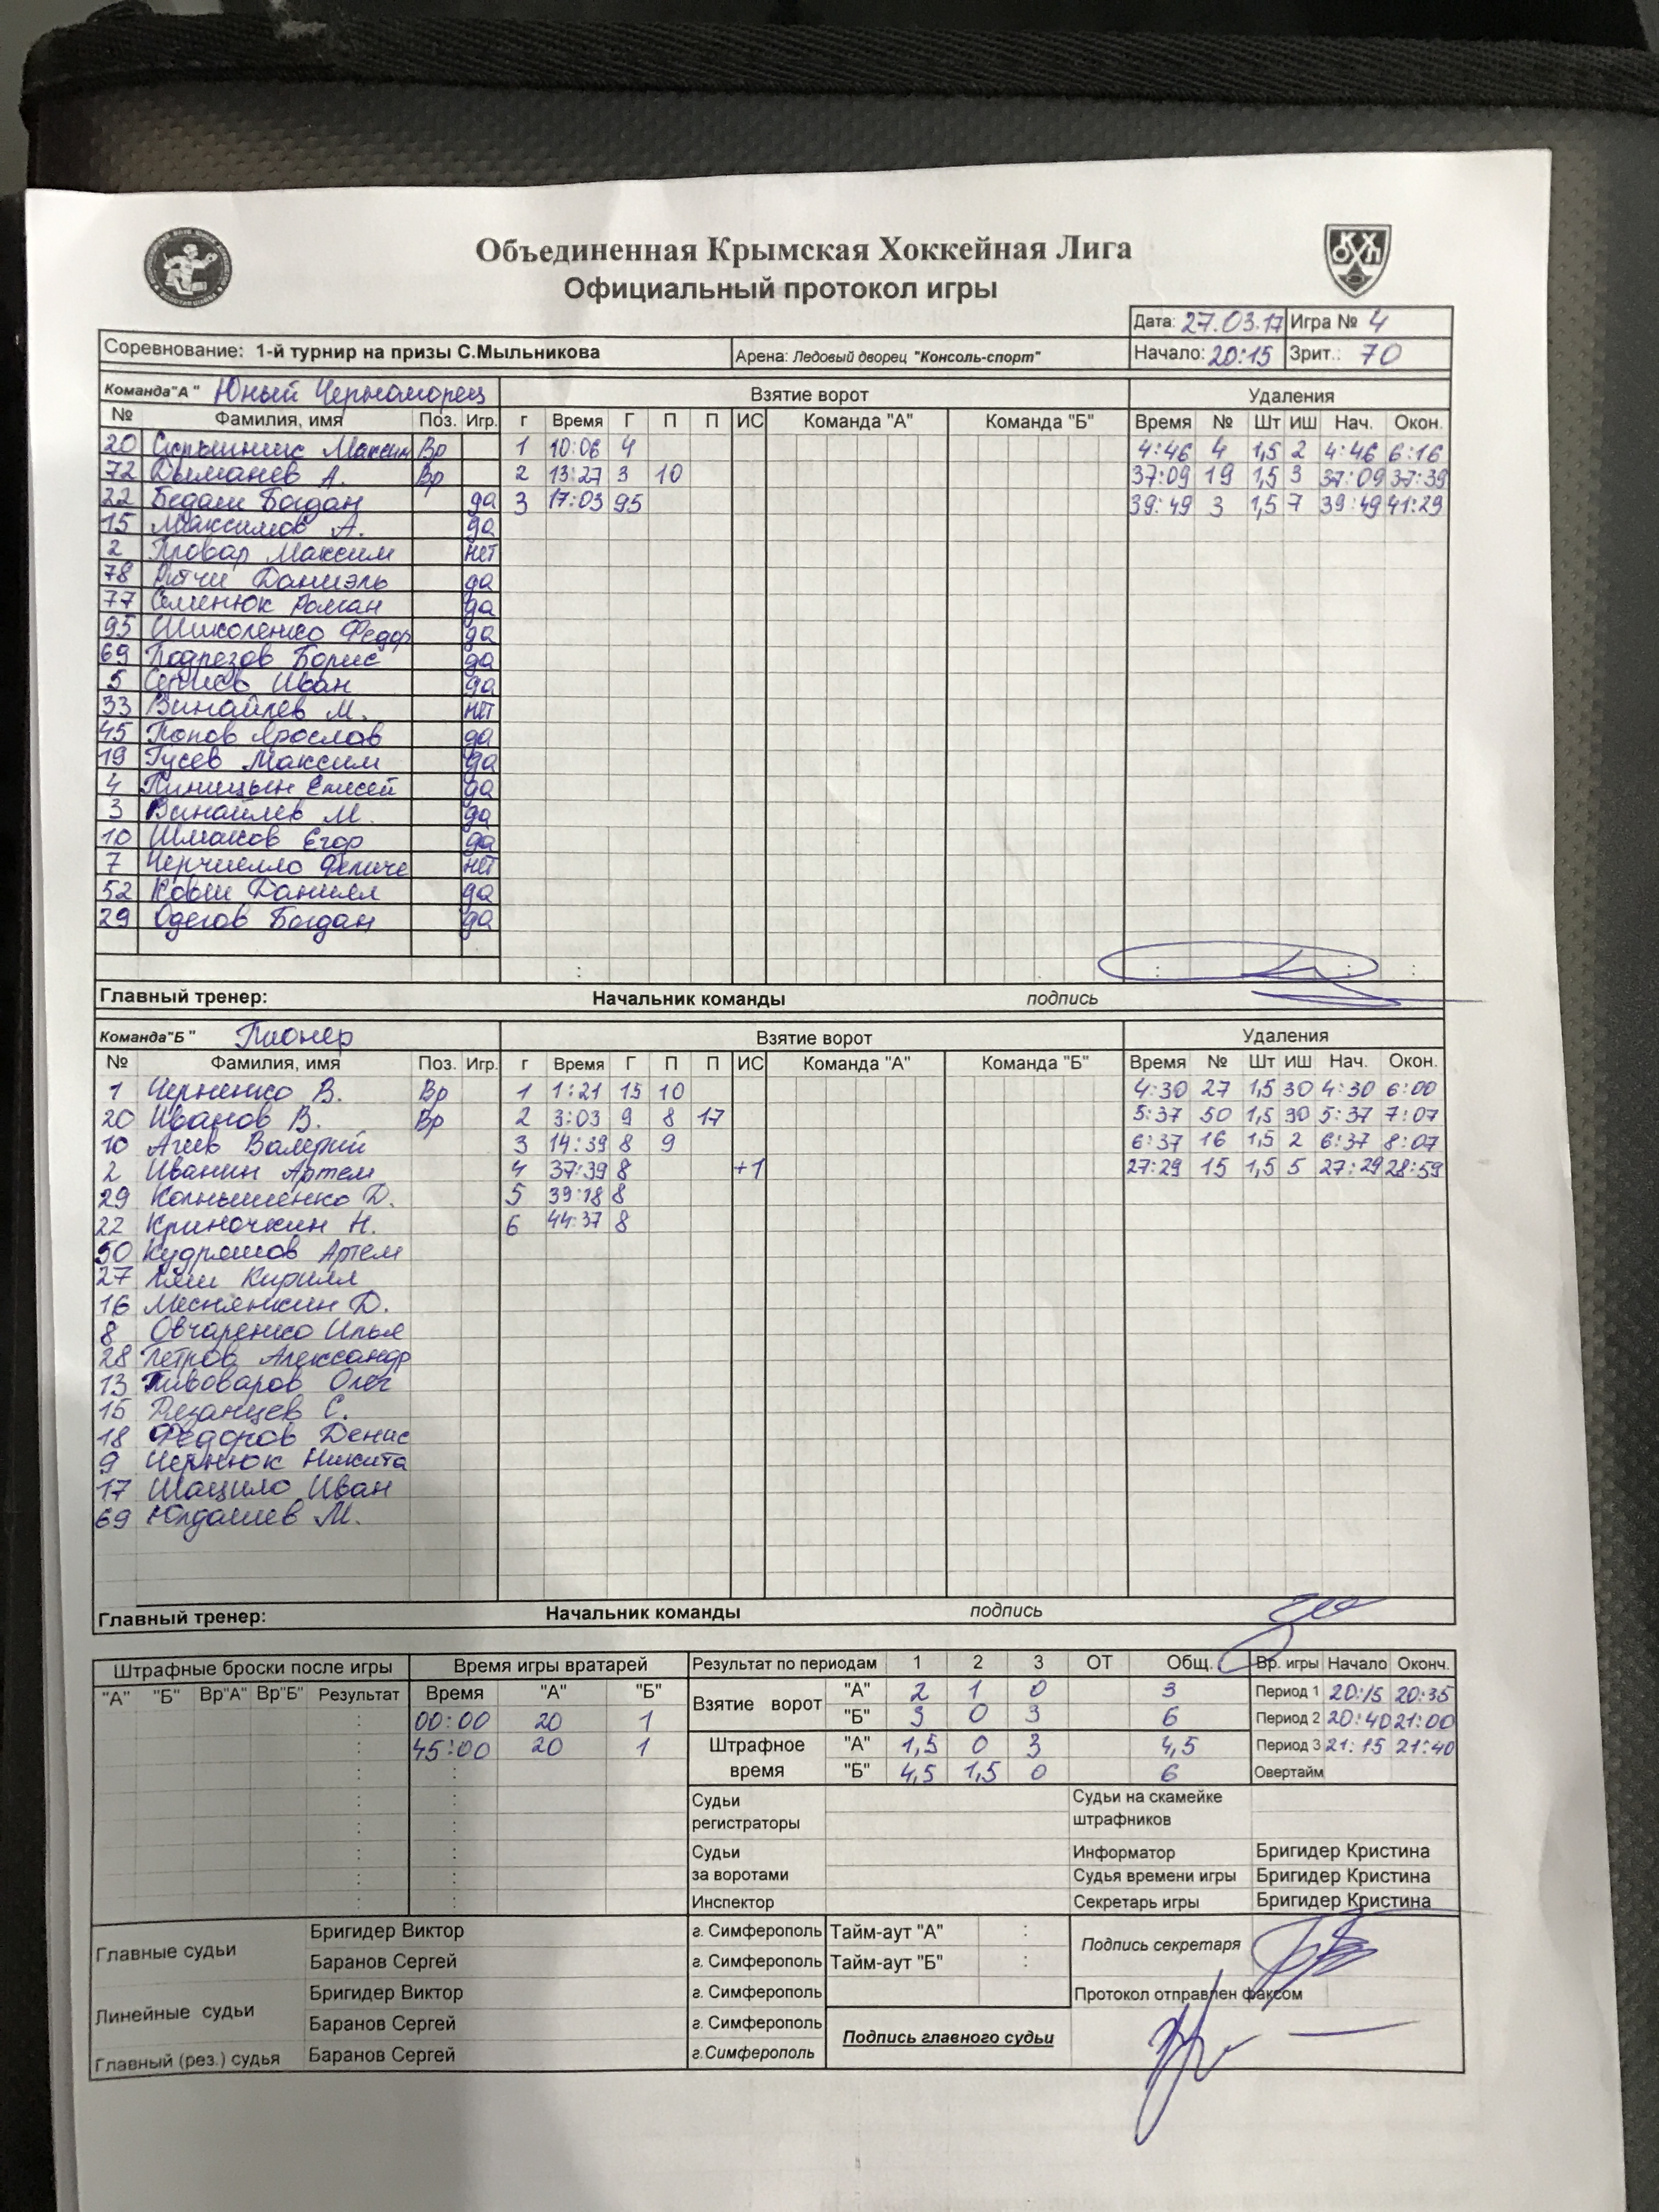 Объединенная Крымская Хоккейная Лига
Официальный протокол игры
ОКХЛ
Дата: 27.03.17 Игра № 4
Соревнование: 1-й турнир на призы С.Мыльникова Арена: Ледовый дворец "Консоль-спорт" Начало: 20:15 Зрит.: 70
Команда"А" Юный Черноморец Взятие ворот Удаления
№ Фамилия, имя Поз. Игр. г Время Г П П ИС Команда "А" Команда "Б" Время № Шт ИШ Нач. Окон.
20 Максим Вр 1 10:06 4 4:46 4 1,5 2 4:46 6:16
72 Дыманев А. Вр 2 13:27 3 10 37:09 19 1,5 3 37:09 37:39
22 Бедаш Богдан да 3 17:03 95 39:49 3 1,5 7 39:49 41:29
15 Максимов А. да
2 Провар Максим нет
78 Ритчи Даниэль да
77 Семенюк Роман да
95 Шиколенко Федор да
69 Подрезов Борис да
5 Иван да
33 Винайлев М. нет
45 Попов Ярослав да
19 Гусев Максим да
4 Пиницын Елисей да
3 Винайлев М. да
10 Шмаков Егор да
7 Черчиелло Феличе нет
52 Ковш Даниил да
29 Одегов Богдан да
: : : :
Главный тренер: Начальник команды подпись
Команда"Б" Пионер Взятие ворот Удаления
№ Фамилия, имя Поз. Игр. г Время Г П П ИС Команда "А" Команда "Б" Время № Шт ИШ Нач. Окон.
1 Черненко В. Вр 1 1:21 15 10 4:30 27 1,5 30 4:30 6:00
20 Иванов В. Вр 2 3:03 9 8 17 5:37 50 1,5 30 5:37 7:07
10 Агеев Валерий 3 14:39 8 9 6:37 16 1,5 2 6:37 8:07
2 Иванин Артем 4 37:39 8 +1 27:29 15 1,5 5 27:29 28:59
29 Колнышенко Д. 5 39:18 8
22 Криночкин Н. 6 44:37 8
50 Кудряшов Артем
27 Ляш Кирилл
16 Меснянкин Д.
8 Овчаренко Илья
28 Петров Александр
13 Пивоваров Олег
15 Рязанцев С.
18 Федоров Денис
9 Чернюк Никита
17 Шацило Иван
69 Юлдашев М.
Главный тренер: Начальник команды подпись
Штрафные броски после игры Время игры вратарей Результат по периодам 1 2 3 ОТ Общ. Вр. игры Начало Оконч.
"А" "Б" Вр"А" Вр"Б" Результат Время "А" "Б" Взятие ворот "А" 2 1 0 3 Период 1 20:15 20:35
: 00:00 20 1 "Б" 3 0 3 6 Период 2 20:40 21:00
: 45:00 20 1 Штрафное время "А" 1,5 0 3 4,5 Период 3 21:15 21:40
: : "Б" 4,5 1,5 0 6 Овертайм
Судьи регистраторы Судьи на скамейке штрафников
Судьи за воротами Информатор Бригидер Кристина
Судья времени игры Бригидер Кристина
Инспектор Секретарь игры Бригидер Кристина
Главные судьи Бригидер Виктор г. Симферополь Тайм-аут "А" : Подпись секретаря
Баранов Сергей г. Симферополь Тайм-аут "Б" :
Линейные судьи Бригидер Виктор г. Симферополь Протокол отправлен факсом
Баранов Сергей г. Симферополь Подпись главного судьи
Главный (рез.) судья Баранов Сергей г.Симферополь